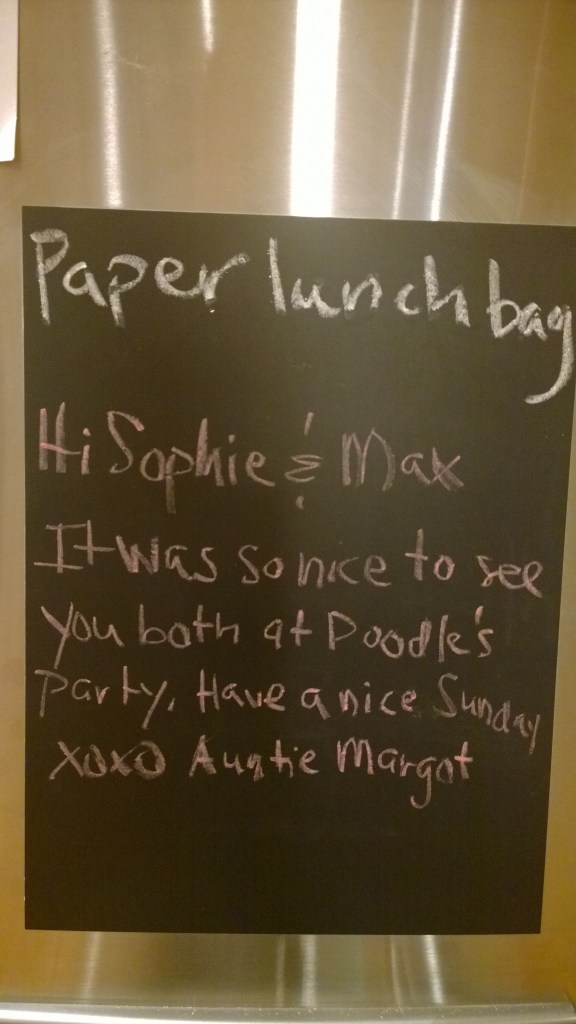 Paper lunch bag
Hi Sophie & Max
It was so nice to see
you both at Doodle's
Party. Have a nice Sunday
xoxo Auntie Margot